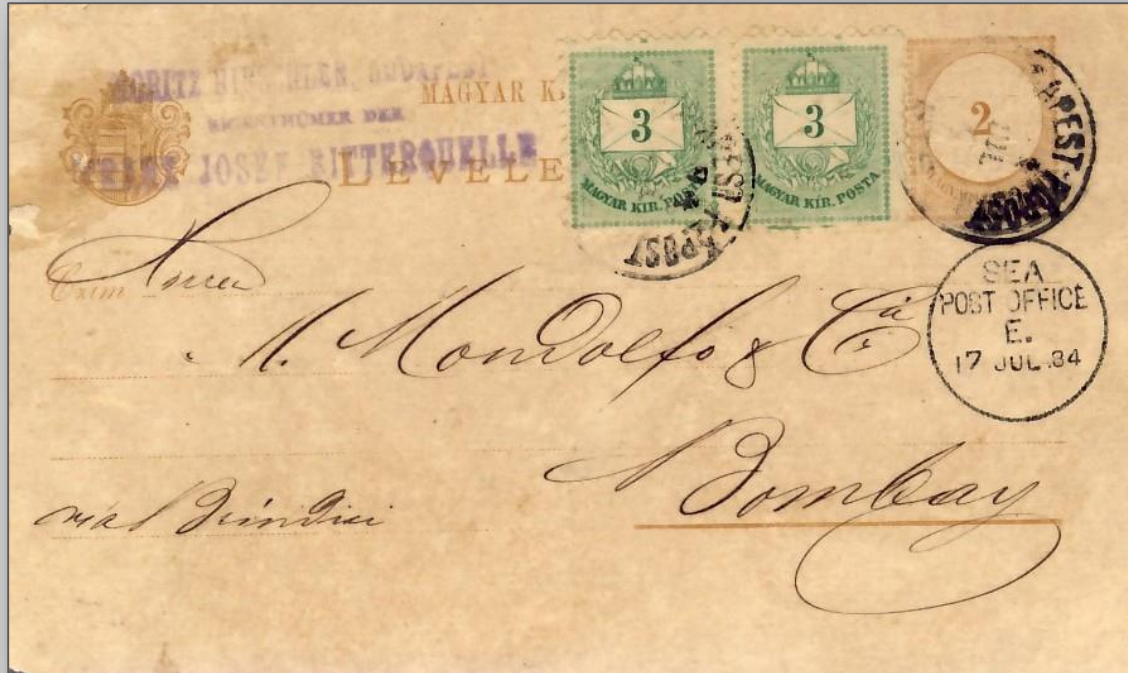 MORITZ HIRSCHLER, BUDAPEST
EIGENTHÜMER DER
FRANZ JOSEF BITTERQUELLE
MAGYAR K
LEVELE
3
MAGYAR KIR. POSTA
3
MAGYAR KIR. POSTA
2
BUDAPEST
SEA
POST OFFICE
E.
17 JUL.84
Czim
Mondolfo & Co
Bombay
via Brindisi